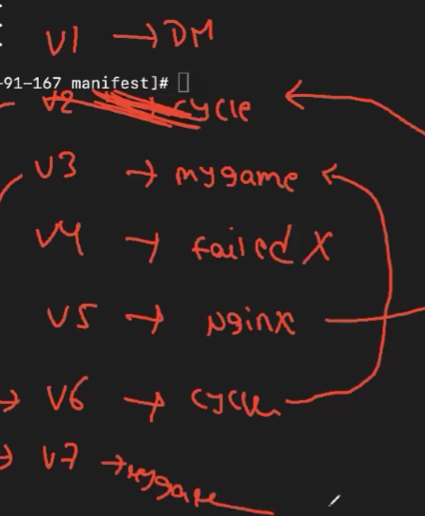 V1 → DM
-91-167 manifest]#
V2 → cycle
V3 → mygame
V4 → failed X
V5 → Nginx
V6 → cycle
V7 → mygame